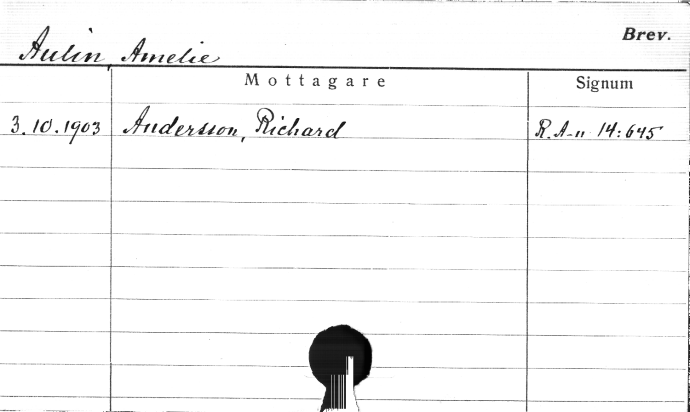 Brev.
Aulin, Amelie
Mottagare Signum
3.10.1903 Andersson, Richard R. A-n 14:645